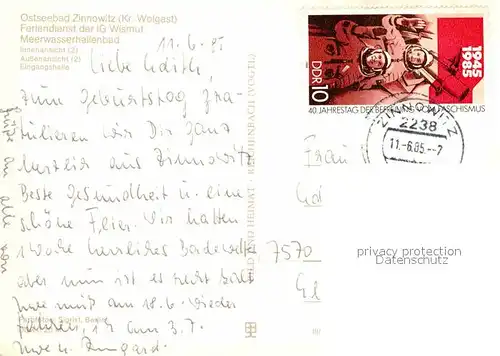 Ostseebad Zinnowitz (Kr. Wolgast)
Feriendienst der IG Wismut
Meerwasserhallenbad
Innenansicht (2)
Außenansicht (2)
Eingangshalle
11.6.85
Liebe Edith,
zum Geburtstag gra-
tulieren wir Dir ganz
herzlich aus Zinnowitz
Beste Gesundheit u. eine
schöne Feier. Wir hatten
1 Woche herrliches Badewetter
aber nun ist es recht kalt
muß am 18.6. wieder
fahren, ich am 3.7.
u. Irmgard.
Grüße an alle von
BILD UND HEIMAT · REICHENBACH (VOGTL)
DDR 10
1945
1985
40. JAHRESTAG DER BEFREIUNG VOM FASCHISMUS
ZINNOWITZ
2238
11.-6.85.-7
Frau
7570
privacy protection
Datenschutz